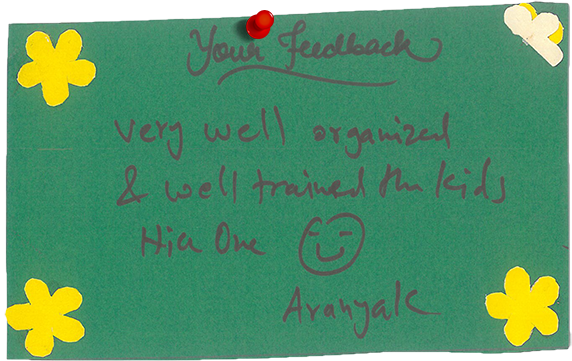 Your Feedback
very well organized
& well trained the kids
Nice One
Aranyak